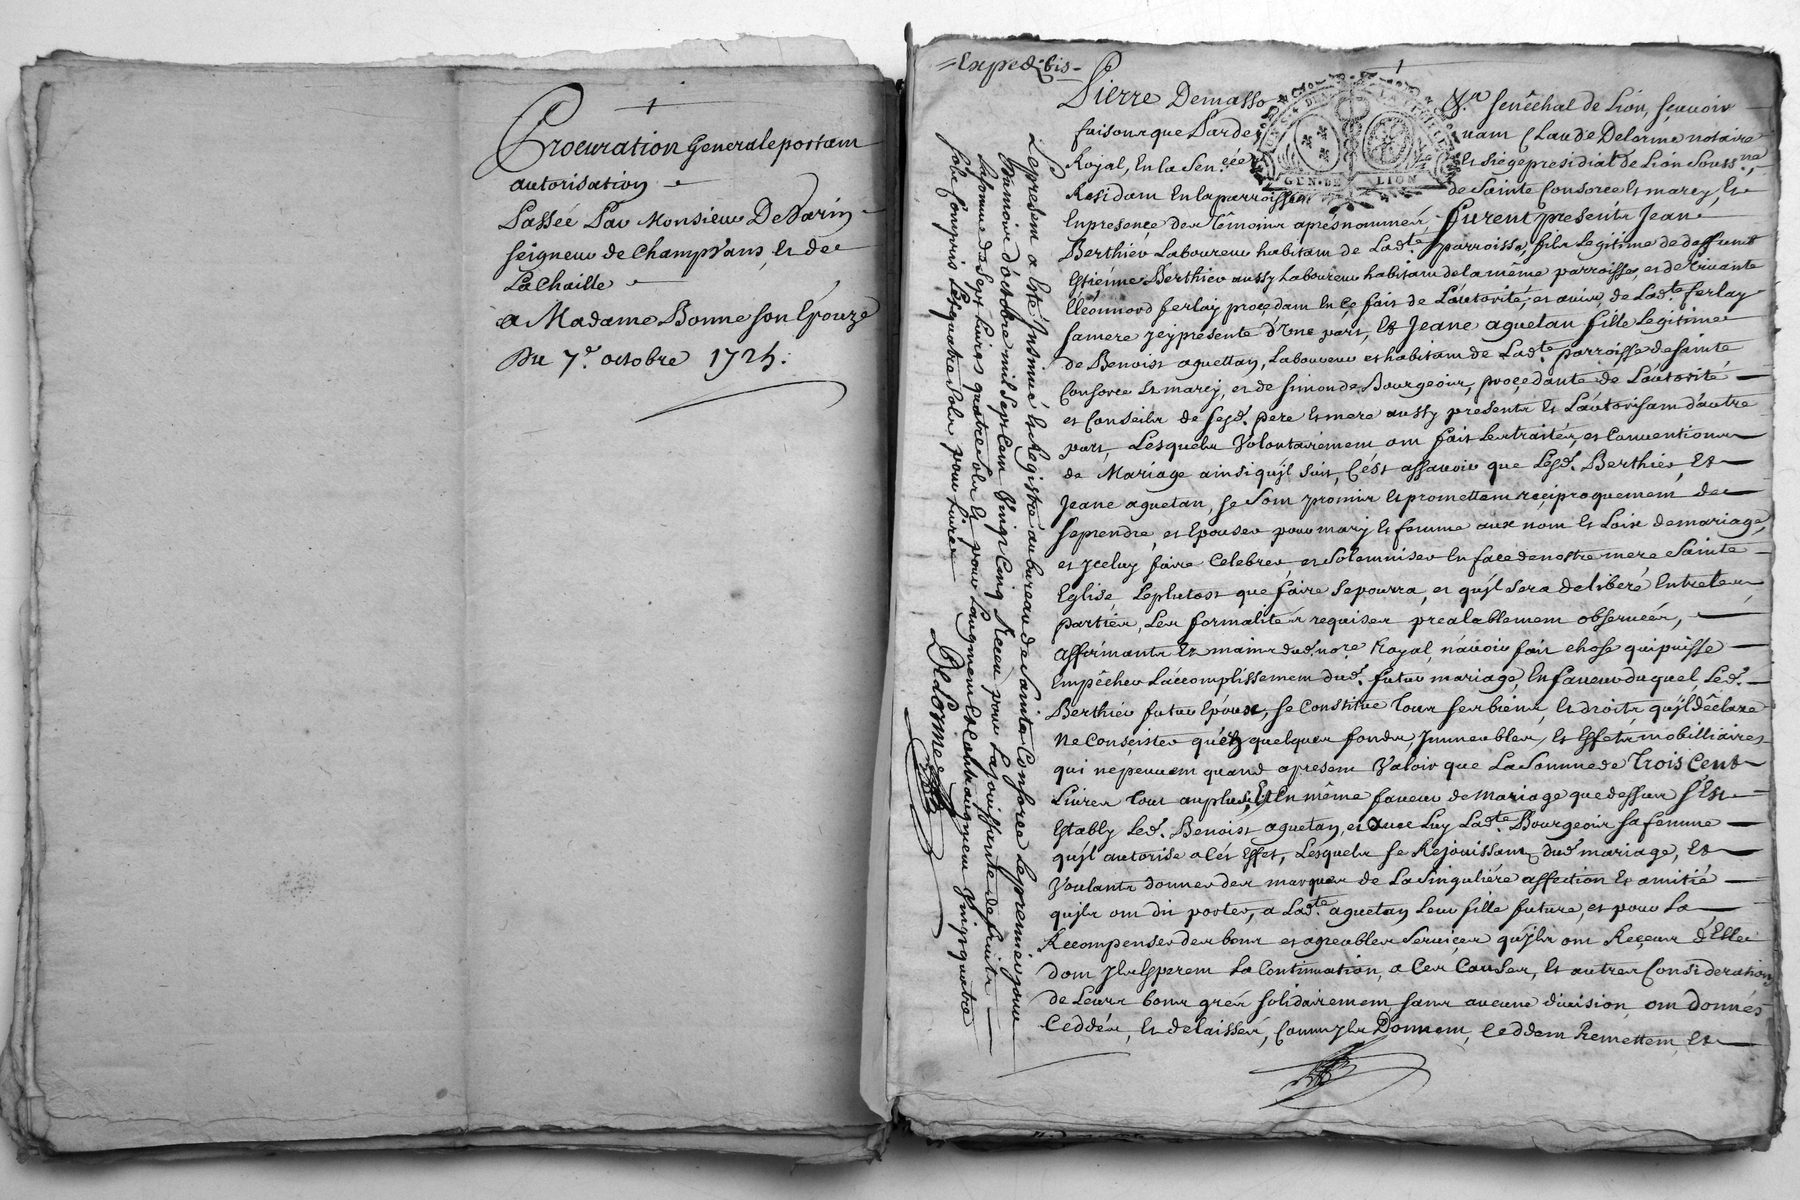 Procuration Generale portant
autorisation
Passée Par Monsieur De Varin
seigneur de ChampVans, et de
La Chaille
a Madame Bonne son Epouze
Du 7.e octobre 1725.
=Exped. bis=
Pierre Demasso Sr. senêchal de Lion, sçavoir
faisons que Parde uant Claude Delorme notaire
Royal, En la Sen.cée et siege presidial de Lion Souss.né,
Residant En la parroisse de Sainte Consorce et marcy, Et
En presence des Têmoins aprés nommés, furent presents Jean
Berthier Laboureur habitant de Lad.te parroisse, fils Legitime de deffunt
Estienne Berthier aussy Laboureur habitant de la même parroisse, et de vivante
Eléonnord ferlay procedant En Ce fait de L'autorité, et avis, de Lad.te ferlay
sa mere Icy présente d'Vne part, Et Jeane aguetan fille Legitime
de Benoist aguettan, Laboureur et habitant de Lad.te parroisse de Sainte
Consorce et marcy, et de Simonde Bourgeois, procedante de L'autorité
et Conseils de Sesd. pere et mere aussy presents et L'autorisant d'autre
part, Lesquels Volontairement ont fait Les traités, et Conventions
de Mariage ainsi qu'jl suit, C'ést assavoir que Lesd. Berthier, Et
Jeane aguetan, se Sont promis et promettent reciproquement de
se prendre, et Epouser pour mary et femme aux nom et Loix de mariage,
et Jceluy faire Celebrer, et Solemniser En face de nostre mere Sainte
Eglise Le plutost que faire se pourra, et qu'jl sera deliberé Entre Les
parties, Les formalités requises prealablement observées,
Affirmants Ez mains dud. no.re Royal, n'avoir fait chose qui puisse
Empêcher L'accomplissement dud. futur mariage, En faveur duquel Led.
Berthier futur Epoux, se Constitue Tous ses biens, et droits qu'jl dêclare
Ne Consister qu'en quelques fonds, Jmmeubles, et Effets mobilliaires
qui ne peuvent quand a present Valoir que La Somme de Trois Cent
Livres Tout au plus, Et En même faveur de mariage que dessus s'Est
Estably Led. Benoist aguetan, et avec Luy Lad.te Bourgeois sa femme
qu'jl autorise a Cés Effet, Lesquels se Rejouissant dud. mariage, Et
Voulants donner des marques de La Singuliére affection et amitié
qu'jls ont dit porter, a Lad.te aguetan Leur fille future, et pour La
Recompenser des bons et agreables Services qu'Jls ont Reçeus d'Elle
dont Jls Esperent La Continuation, a Ces Causes, et autres Considerations
de Leurs bons grés solidairement sans aucune division ont donnés
Ceddés, et delaissés, Comm'Jls Donnent, Ceddent Remettent, et
Le present a Esté Jnsinué et Registré au bureau de Sainte Consorce Le premier jour
du mois d'octobre mil Sept Cent Vingt Cinq Receu pour La jouissante de fruits
La somme de Sept Livres quatre sols et pour L'augment et Contraugment Vingt quatre
sols Compris Les quatre sols pour Livre
DeLorme
GEN. DE LION